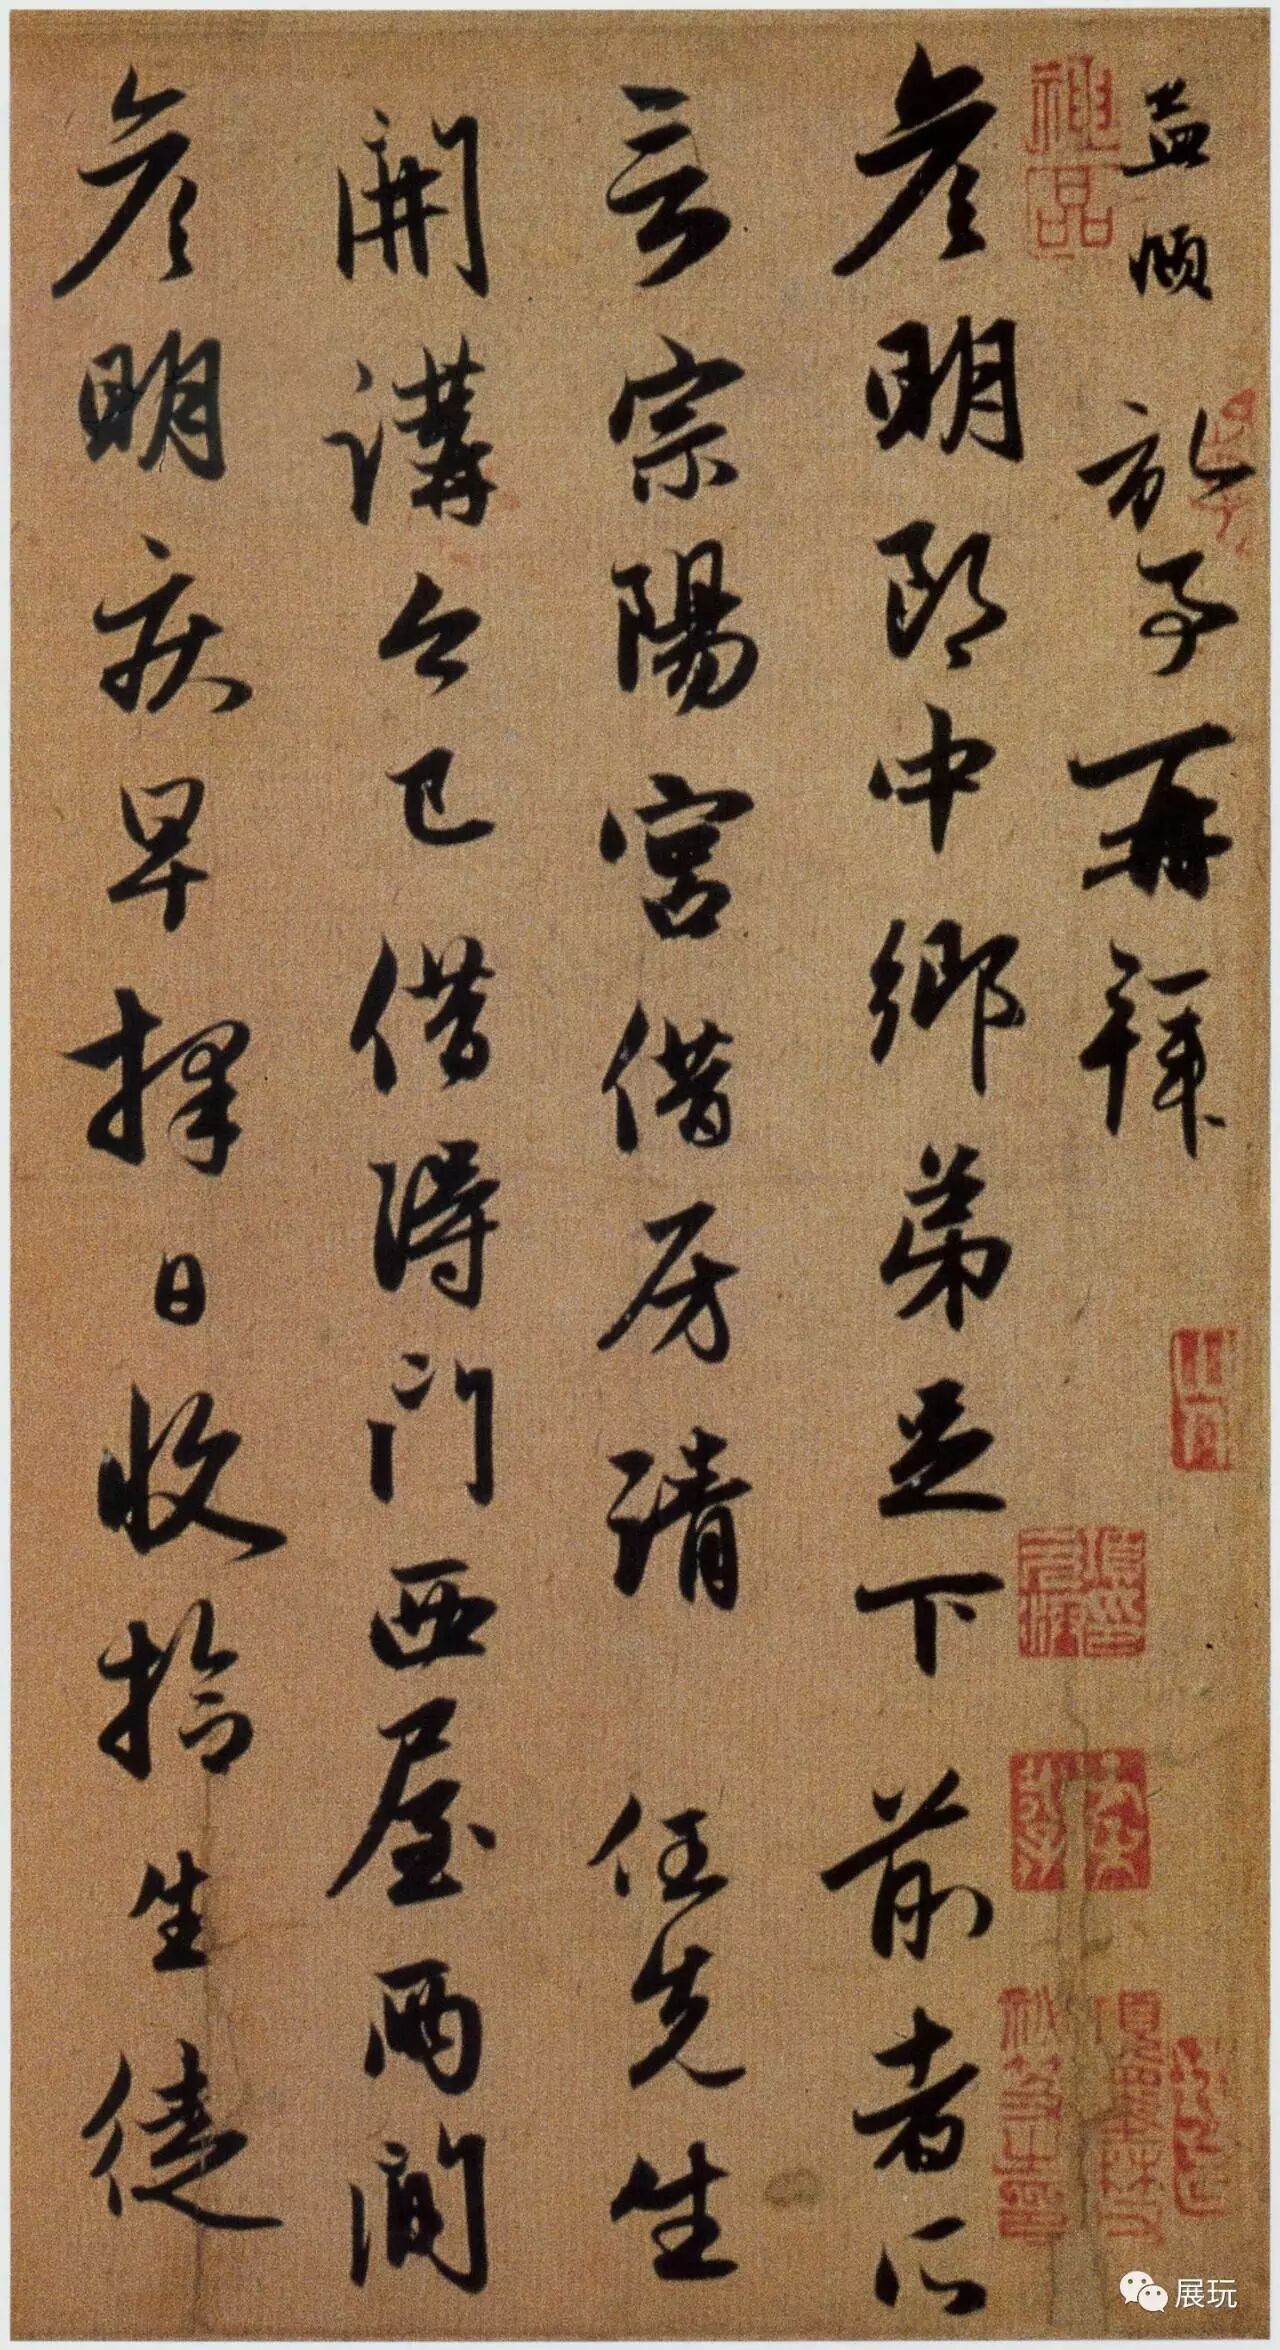 孟頫於子再拜
彥明郎中鄉弟足下前者所
言宗陽宮借房請任先生
開講今已借得門西屋兩間
彥明疾早擇日收拾生徒
展玩